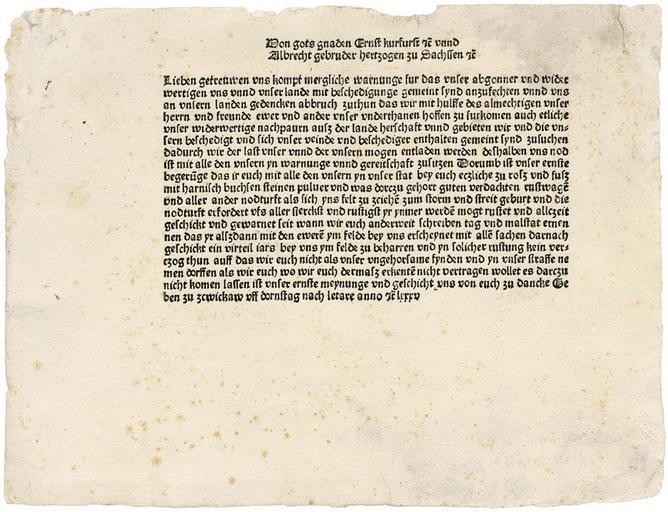 Von gots gnaden Ernst kurfurst ꝛc̃ vnnd
Albrecht gebruder hertzogen zu Sachssen ꝛc̃
Lieben getreuwen vns kompt mergliche warnunge fur das vnser abgonner vnd wider
wertigen vns vnnd vnser lande mit beschedigunge gemeint synd anzufechten vnnd vns
an vnsern landen gedencken abbruch zuthun das wir mit hulffe des almechtigen vnser
herrn vnd freunde ewer vnd ander vnser vnderthanen hoffen zu furkomen auch etliche
vnser widerwertige nachpaurn ausz der lande herschaft vnnd gebieten wir vnd die vn-
sern beschedigt vnd sich vnser veinde vnd beschediger enthalten gemeint synd zusuchen
dadurch wir der last vnser vnnd der vnsern mogen entladen werden deshalben vns nod
ist mit alle den vnsern yn warnunge vnnd gereitschaft zusitzen Dorumb ist vnser ernste
begerũge das ir euch mit alle den vnsern yn vnser stat bey euch eczliche zu rosz vnd fusz
mit harnisch buchsen steinen puluer vnd was dorczu gehort guten verdackten rustwagẽ
vnd aller ander nodturft als sich yns felt zu zciehẽ zum storm vnd streit geburt vnd die
nodturft erfordert vfs aller sterckst vnd rustigst yr ymmer werdẽ mogt rustet vnd allczeit
geschickt vnd gewarnet seit wann wir euch anderweit schreiben tag vnd malstat ernen
nen das yr alszdann mit den ewerẽ ym felde bey vns erscheynet mit allẽ sachen darnach
geschickt ein virteil iars bey vns ym felde zu beharren vnd yn solicher rustung kein ver-
czog thun auff das wir euch nicht als vnser vngehorsame fynden vnd yn vnser straffe ne
men dorffen als wir euch wo wir euch dermasz erkentẽ nicht vertragen wollet es darczu
nicht komen lassen ist vnser ernste meynunge vnd geschicht vns von euch zu dancke Ge
ben zu zcwickaw vff dornstag nach letare anno ꝛc̃ lxxxv